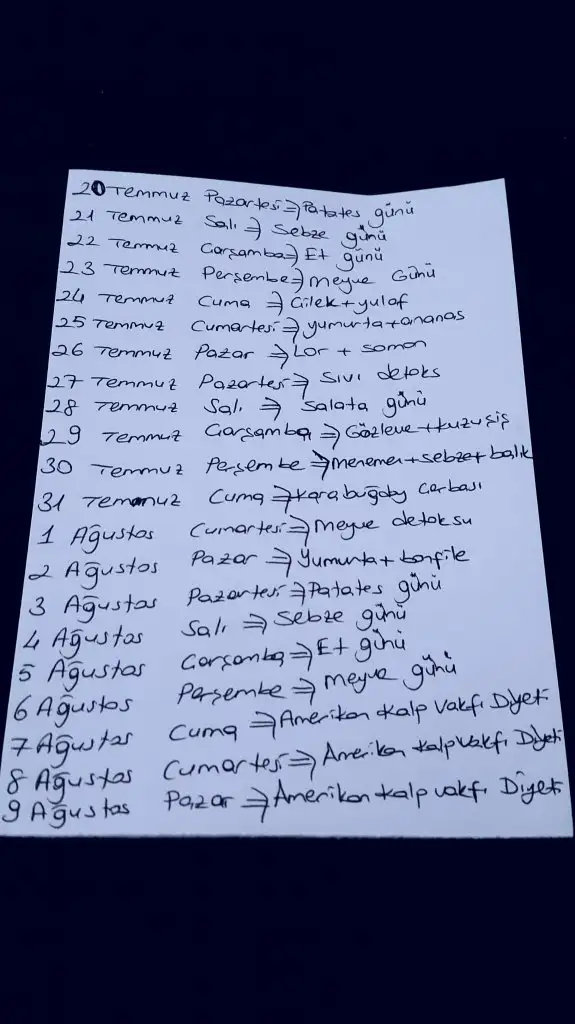 20 Temmuz Pazartesi ⇒ Patates günü
21 Temmuz Salı ⇒ Sebze günü
22 Temmuz Çarşamba ⇒ Et günü
23 Temmuz Perşembe ⇒ Meyve Günü
24 Temmuz Cuma ⇒ Çilek + yulaf
25 Temmuz Cumartesi ⇒ yumurta + ananas
26 Temmuz Pazar ⇒ Lor + somon
27 Temmuz Pazartesi ⇒ Sıvı detoks
28 Temmuz Salı ⇒ Salata günü
29 Temmuz Çarşamba ⇒ Gözleme + kuzu şiş
30 Temmuz Perşembe ⇒ menemen + sebze + balık
31 Temmuz Cuma ⇒ karabuğday çorbası
1 Ağustos Cumartesi ⇒ Meyve detoksu
2 Ağustos Pazar ⇒ Yumurta + bonfile
3 Ağustos Pazartesi ⇒ Patates günü
4 Ağustos Salı ⇒ Sebze günü
5 Ağustos Çarşamba ⇒ Et günü
6 Ağustos Perşembe ⇒ Meyve günü
7 Ağustos Cuma ⇒ Amerikan kalp Vakfı Diyeti
8 Ağustos Cumartesi ⇒ Amerikan kalp vakfı Diyeti
9 Ağustos Pazar ⇒ Amerikan kalp vakfı Diyeti